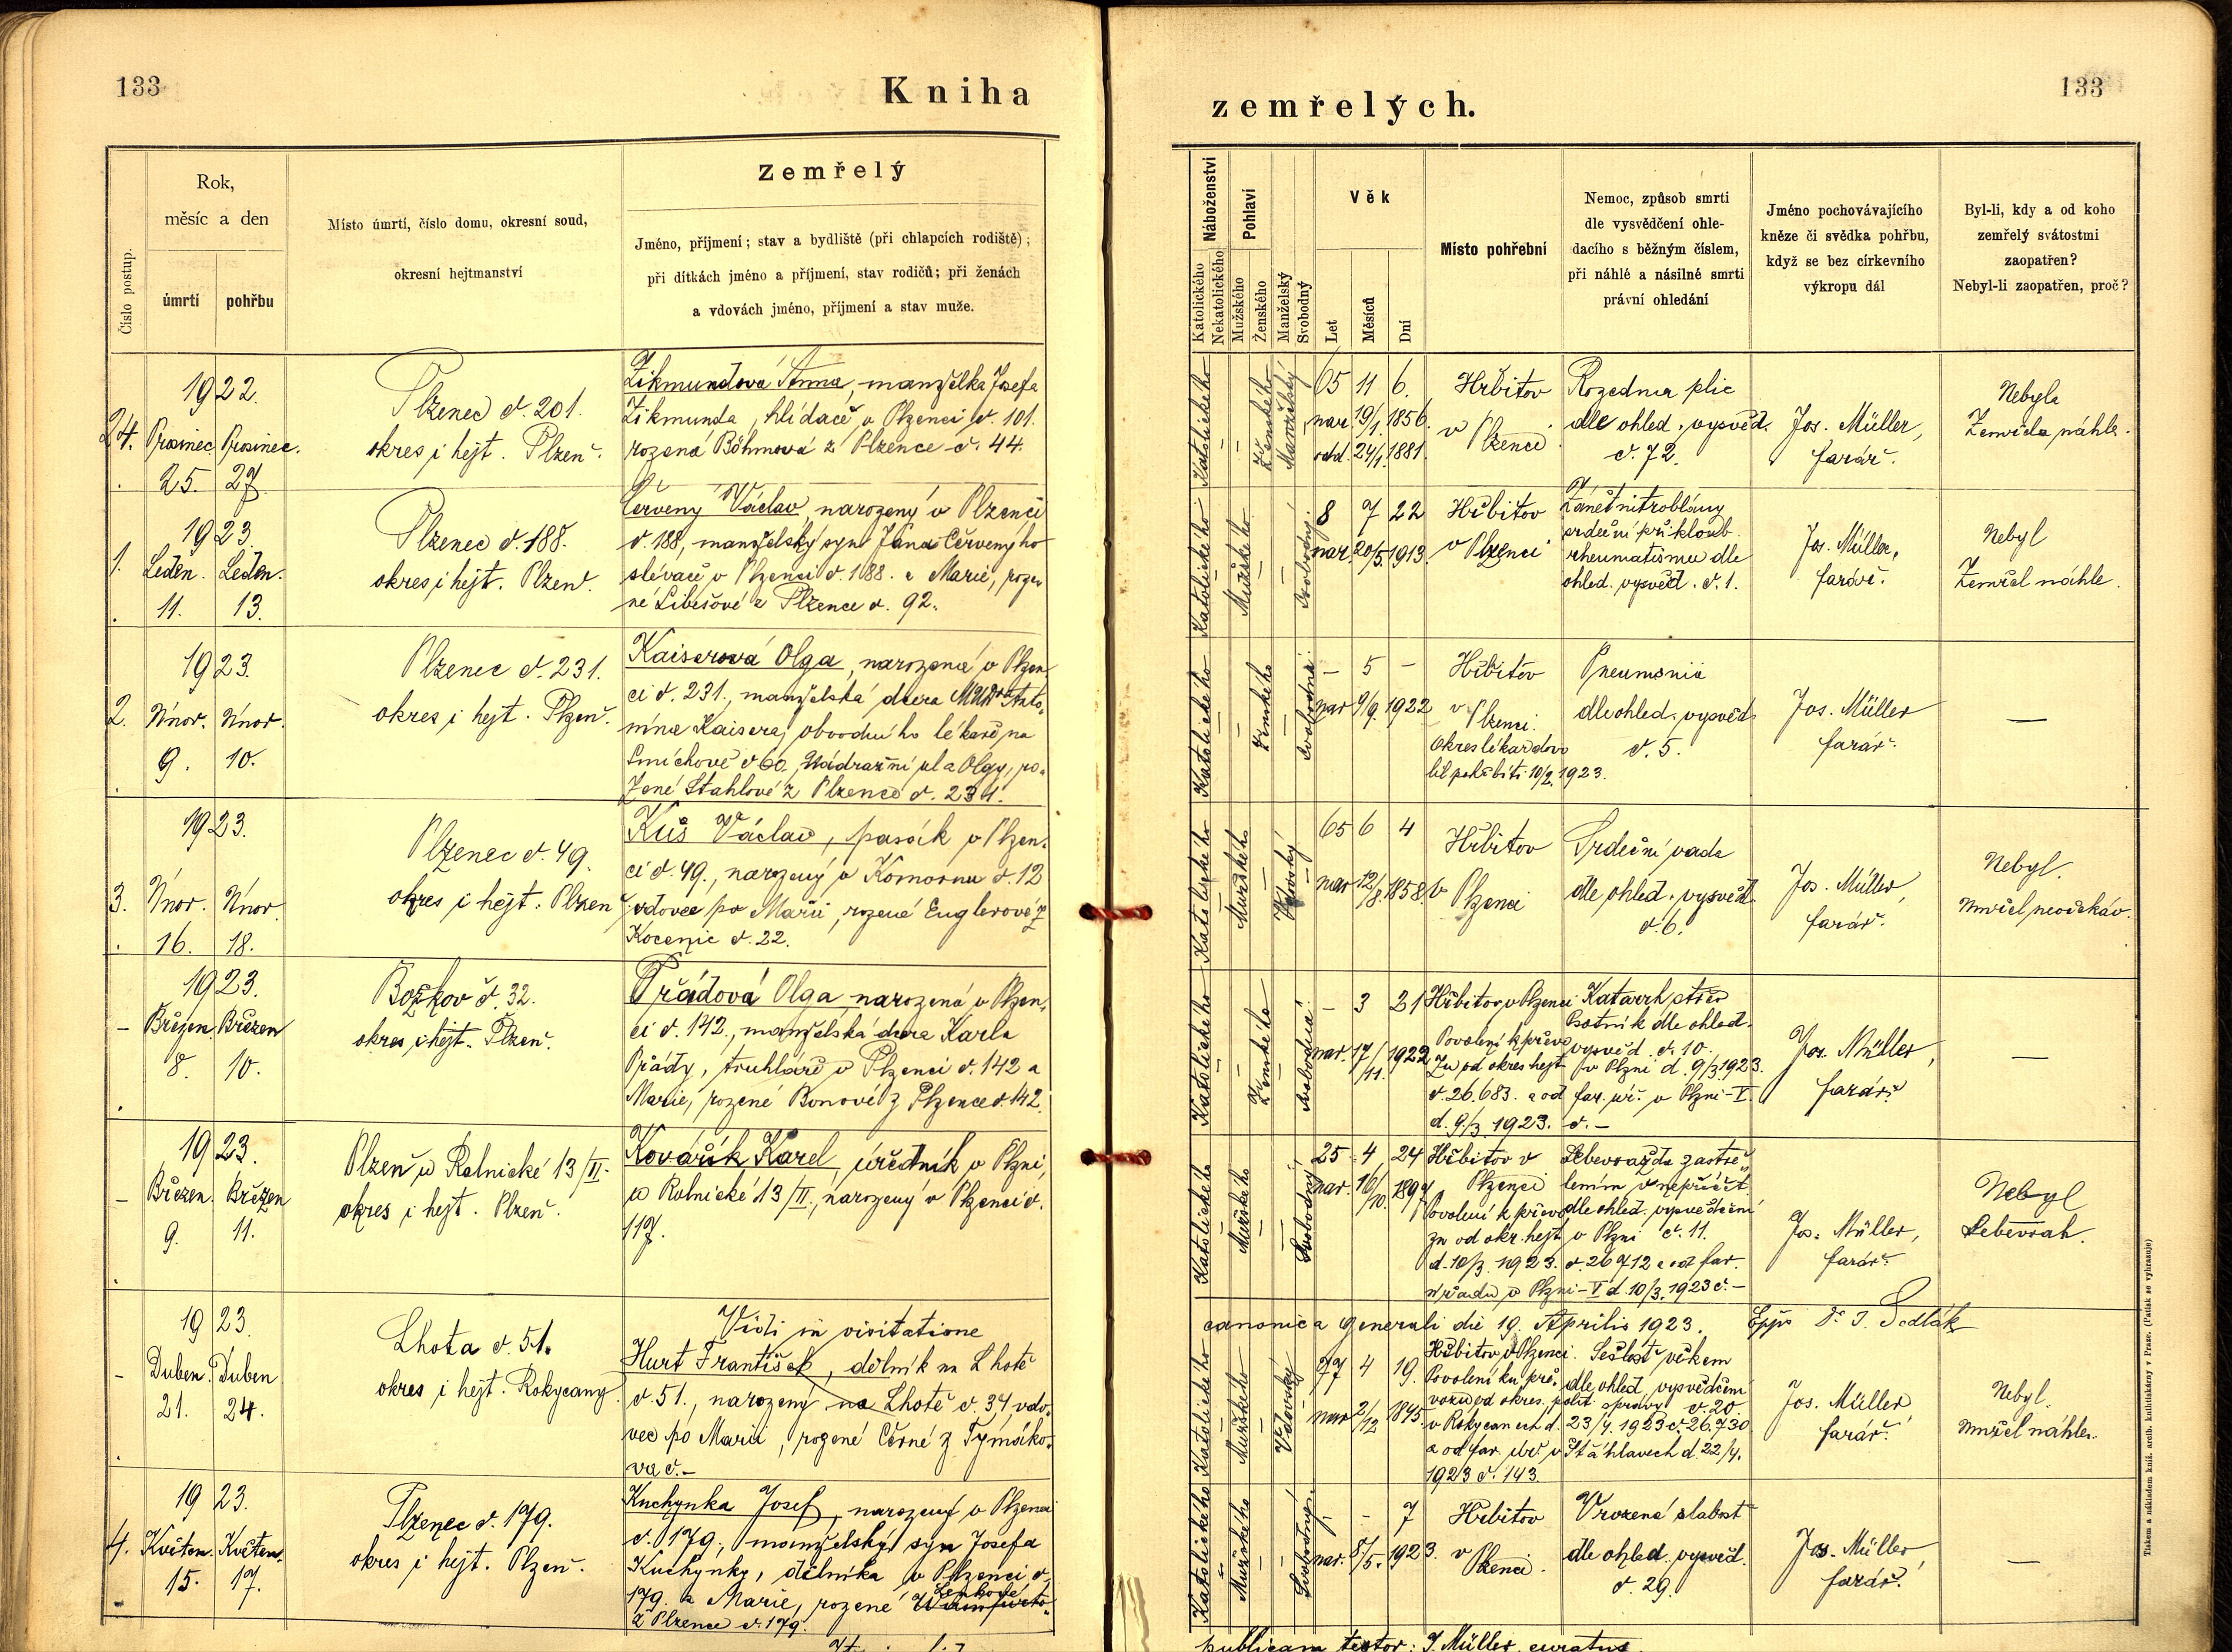 133
Kniha
Rok,
měsíc a den
Číslo postup.
úmrtí
pohřbu
Místo úmrtí, číslo domu, okresní soud,
okresní hejtmanství
Zemřelý
Jméno, příjmení; stav a bydliště (při chlapcích rodiště);
při dítkách jméno a příjmení, stav rodičů; při ženách
a vdovách jméno, příjmení a stav muže.
24.
1922.
Prosinec Prosinec.
25. 27.
Plzenec č. 201.
okres i hejt. Plzeň.
Zikmundová Anna, manželka Josefa
Zikmunda, hlídače v Plzenci č. 101.
rozená Böhmová z Plzence č. 44.
1.
1923.
Leden. Leden.
11. 13.
Plzenec č. 188.
okres i hejt. Plzeň.
Červený Václav, narozený v Plzenci
č. 188, manželský syn Jana Červenýho
slévače v Plzenci č. 188. a Marie, roze
né Libešové z Plzence č. 92.
2.
1923.
Únor. Únor.
9. 10.
Plzenec č. 231.
okres i hejt. Plzeň.
Kaiserová Olga, narozená v Plzen
ci č. 231., manželská dcera MUDra Anto
nína Kaisera, obvodního lékaře na
Smíchově č 60., Nádražní ul a Olgy, ro
zené Stahlové z Plzence č. 231.
3.
1923.
Únor. Únor.
16. 18.
Plzenec č. 49.
okres i hejt. Plzeň
Kůs Václav, pasák v Plzen
ci č. 49., narozený v Komornu č. 12
vdovec po Marii, rozené Englerové z
Kocenic č. 22.
–
1923.
Březen. Březen
8. 10.
Božkov č. 32.
okres i hejt. Plzeň.
Přádová Olga, narozená v Plzen
ci č. 142., manželská dcera Karla
Přády, truhláře v Plzenci č. 142 a
Marie, rozené Bonové z Plzence č. 142.
–
1923.
Březen. Březen
9. 11.
Plzeň u Rolnické 13/II.
okres i hejt. Plzeň.
Kovářík Karel, úředník v Plzni,
u Rolnické 13/II., narozený v Plzenci č.
117.
–
1923.
Duben. Duben
21. 24.
Lhota č. 51.
okres i hejt. Rokycany
Vidi in visitatione
Hurt František, dělník na Lhotě
č. 51., narozený na Lhotě č. 34, vdo
vec po Marii, rozené Černé z Tymáko
va č. –
4.
1923.
Květen. Květen.
15. 17.
Plzenec č. 179.
okres i hejt. Plzeň.
Kuchynka Josef, narozený v Plzenci
č. 179., manželský syn Josefa
Kuchynky, dělníka v Plzenci č.
179. a Marie, rozené Lenkové
z Plzence č. 179.
zemřelých.
133
Náboženství
Katolického
Nekatolického
Pohlaví
Mužského
Ženského
Manželský
Svobodný
Věk
Let
Měsíců
Dní
Místo pohřební
Nemoc, způsob smrti
dle vysvědčení ohle-
dacího s běžným číslem,
při náhlé a násilné smrti
právní ohledání
Jméno pochovávajícího
kněze či svědka pohřbu,
když se bez církevního
výkropu dál
Byl-li, kdy a od koho
zemřelý svátostmi
zaopatřen?
Nebyl-li zaopatřen, proč?
Katolického
Ženského
Manželský
65 11 6.
nar. 19/1. 1856.
odd. 24/1. 1881.
Hřbitov
v Plzenci
Rozedma plic
dle ohled. vysvěd.
č. 72.
Jos. Müller,
farář.
Nebyla
Zemřela náhle.
Katolického
Mužského
Svobodný.
8 7 22
nar. 20/5. 1913.
Hřbitov
v Plzenci
Zánět nitroblány
srdeční při kloub.
rheumatismu dle
ohled. vysvěd. č. 1.
Jos. Müller,
farář.
Nebyl
Zemřel náhle.
Katolického
Ženského
Svobodná.
– 5 –
nar 9/9. 1922
Hřbitov
v Plzenci.
Okres lékař dovo
lil pohřbíti 10/2. 1923.
Pneumonia
dle ohled. vysvěd.
č. 5.
Jos. Müller
farář.
–
Katolického
Mužského
65 6 4
nar 12/8. 1858.
Hřbitov
v Plzenci
Srdeční vada
dle ohled. vysvěd.
č. 6.
Jos. Müller,
farář.
Nebyl.
Umřel neočekáv.
Katolického
Ženského
Svobodná.
– 3 21
nar. 17/11. 1922
Hřbitov v Plzenci
Povolení k převo
zu od okres hejt v Plzni d. 9/3. 1923.
č. 26.683. a od far. úř. v Plzni – V.
d. 9/3. 1923. č. –
Katarrh střev
Psotník dle ohled.
vysvěd. č. 10.
Jos. Müller,
farář.
–
Katolického
Mužského
Svobodný
25 4 24
nar. 16/10. 1897
Hřbitov v
Plzenci
Povolení k převo
zu od okr. hejt v Plzni
d. 10/3. 1923. č. 26712 a od far.
úřadu v Plzni – V d. 10/3. 1923 č. –
Sebevražda zastře
lením v nepříčet.
dle ohled. vysvědčení
č. 11.
Jos. Müller,
farář.
Nebyl
Sebevrah.
canonica generali die 19. Aprilis 1923.
Eppo Dr J. Sedlák
Katolického
Mužského
Vdovský
77 4 19.
nar 2/12 1845.
Hřbitov v Plzenci.
Povolení ku pře-
vozu od okres. polit. správy
v Rokycanech d. 23/4. 1923 č. 26.730
a od far. úřř v Šťáhlavech d. 22/4.
1923 č. 143.
Sešlost věkem
dle ohled. vysvědčení
č. 20.
Jos. Müller
farář.
Nebyl.
Umřel náhle.
Katolického
Mužského
Svobodný.
– – 7
nar. 8/5. 1923.
Hřbitov
v Plzenci.
Vrozená slabost
dle ohled. vysvěd.
č. 29.
Jos. Müller,
farář.
–
publicam testor: J. Müller, curatus.
Tiskem a nákladem kníž. arcib. knihtiskárny v Praze. (Patisk se vyhrazuje)